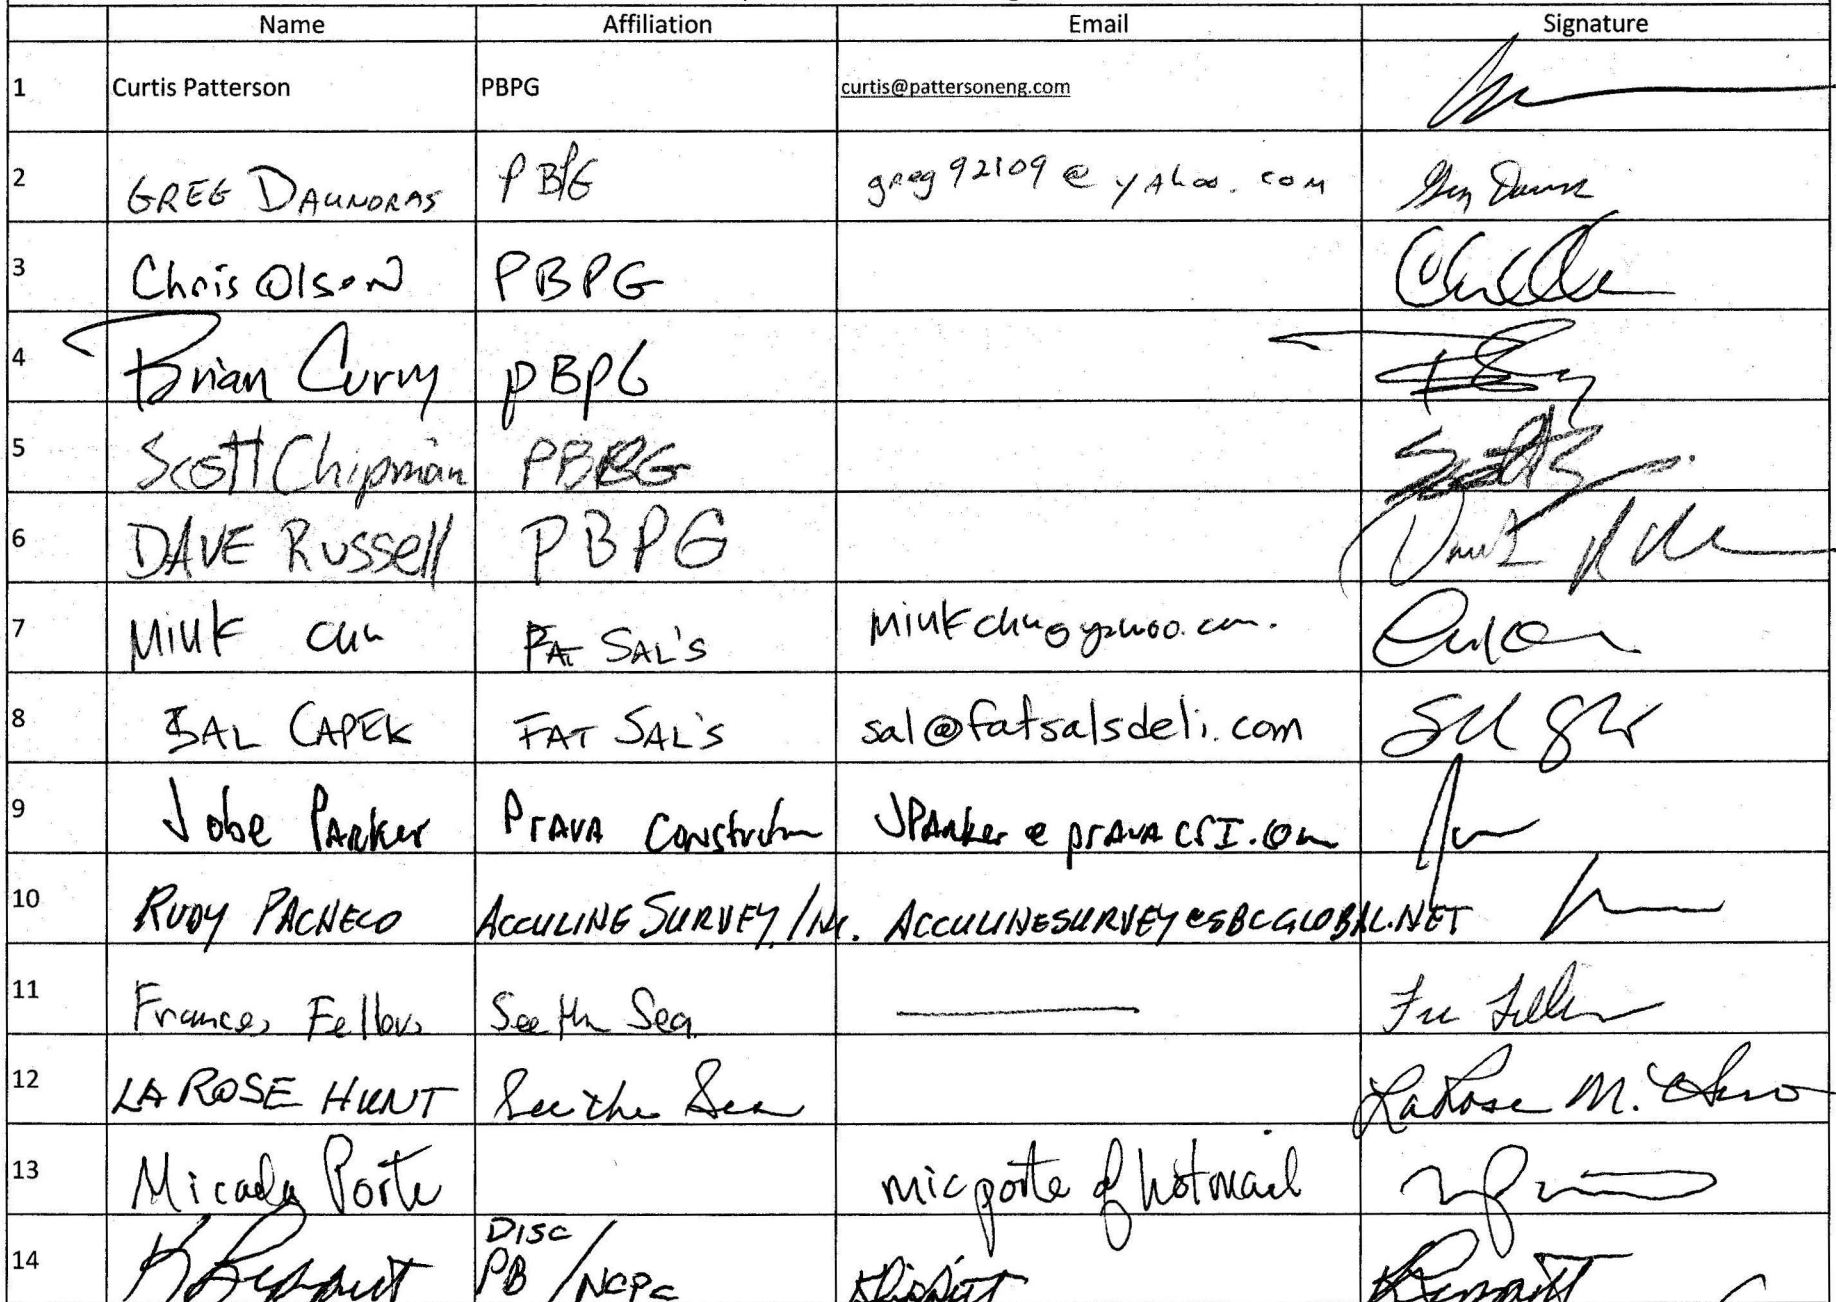 Name Affiliation Email Signature
1 Curtis Patterson PBPG curtis@pattersoneng.com
2 GREG DAUNORAS PBPG greg92109@yahoo.com
3 Chris Olson PBPG
4 Brian Curry PBPG
5 Scott Chipman PBPG
6 DAVE Russell PBPG
7 FAT SAL'S
8 SAL CAPEK FAT SAL'S sal@fatsalsdeli.com
9 Jobe Parker Prava Construction JParker@pravacsi.com
10 RUDY PACHECO ACCULINE SURVEY, INC. ACCULINESURVEY@SBCGLOBAL.NET
11 Frances Fellows See the Sea
12 LA ROSE HUNT See the Sea
13 Porte micporte hotmail
14
DISC
PB